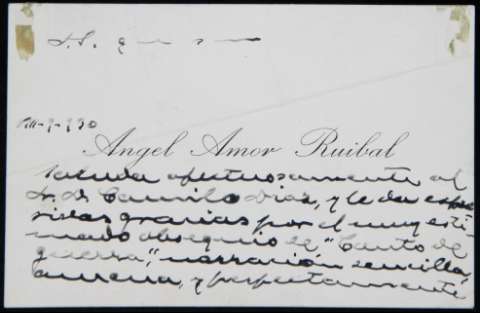 VIII-9-930
Angel Amor Ruibal
saluda afectuosamente al
Sr. D. Camilo Diaz, y le da expre
sivas gracias por el muy esti-
mado obsequio de "Canto de
guerra", narración sencilla,
amena, y perfectamente